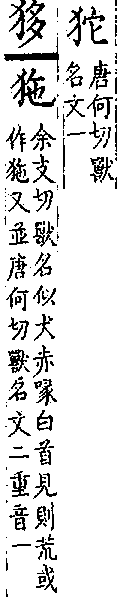 狏
唐何切獸
名文一
余支切獸名似犬赤喙白首見則荒或
作 又並唐何切獸名文二重音一